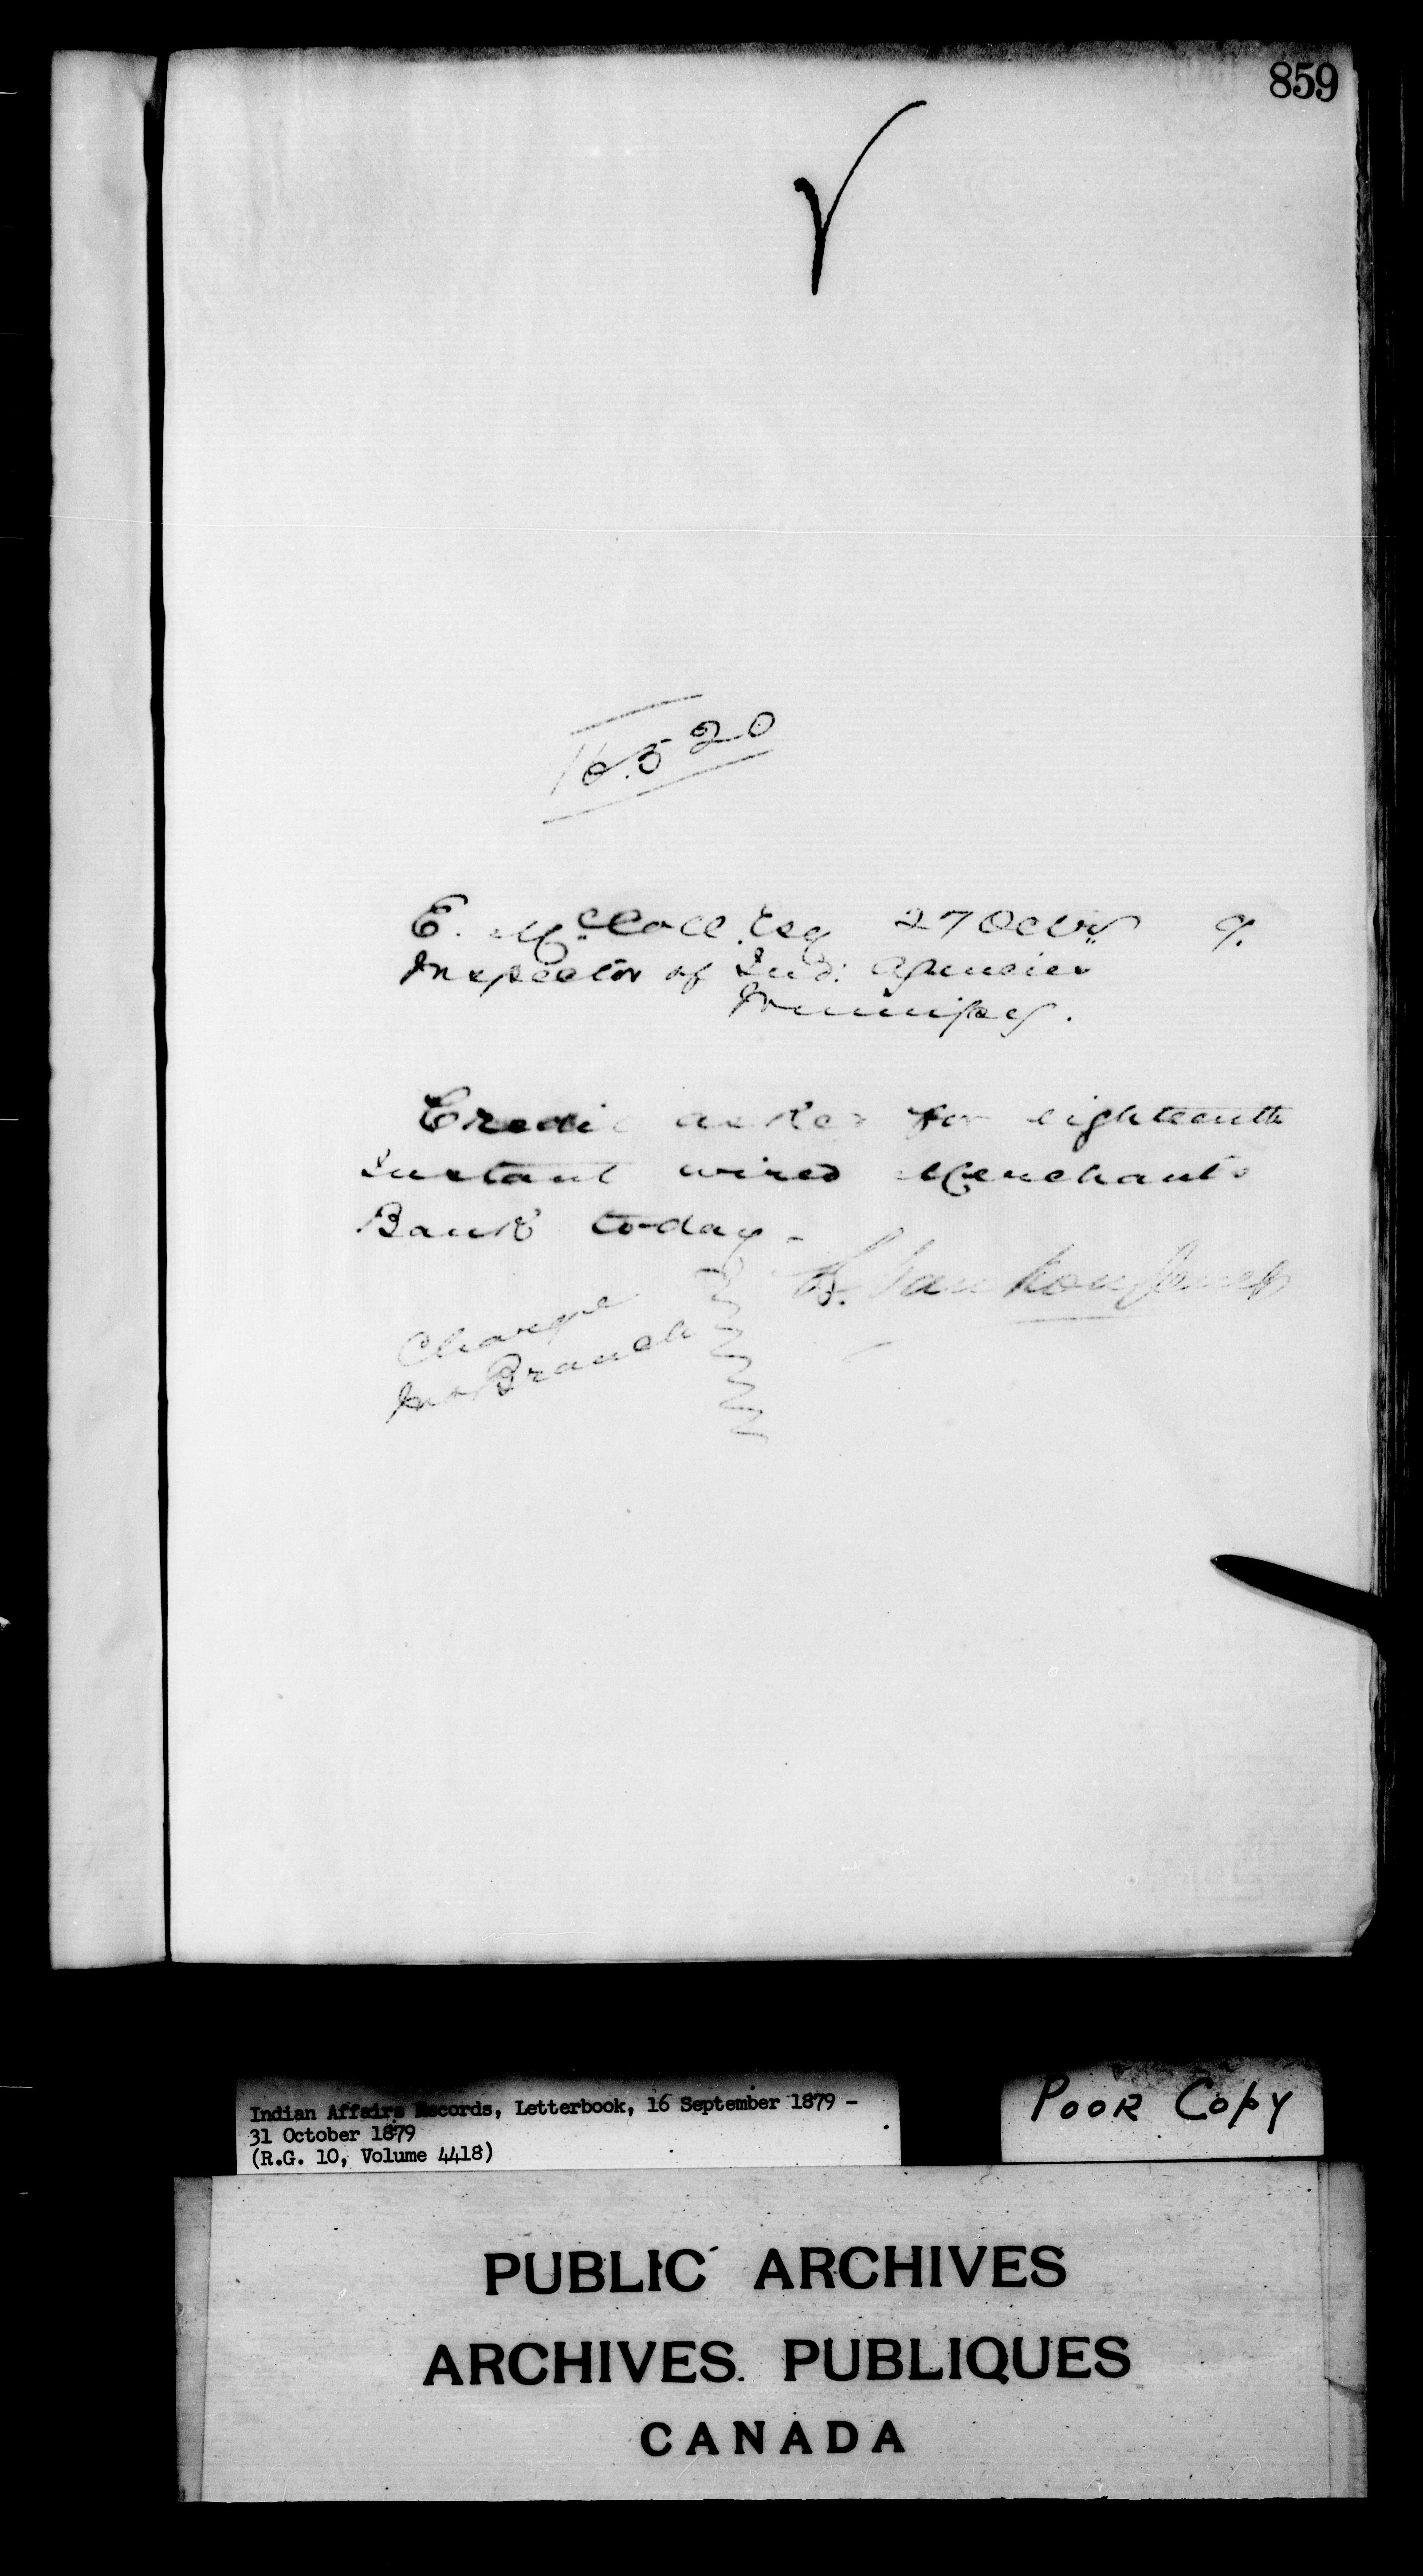 859
16.520
E. McColl Esq 27 Octbr 9.
Inspector of Ind: Agencies
Winnipeg.
Credit asked for eighteenth
Instant wired Merchants
Bank today -
L. Vankoughnet
Charge
Branch
Indian Affairs Records, Letterbook, 16 September 1879 -
31 October 1879
(R.G. 10, Volume 4418)
POOR COPY
PUBLIC ARCHIVES
ARCHIVES PUBLIQUES
CANADA